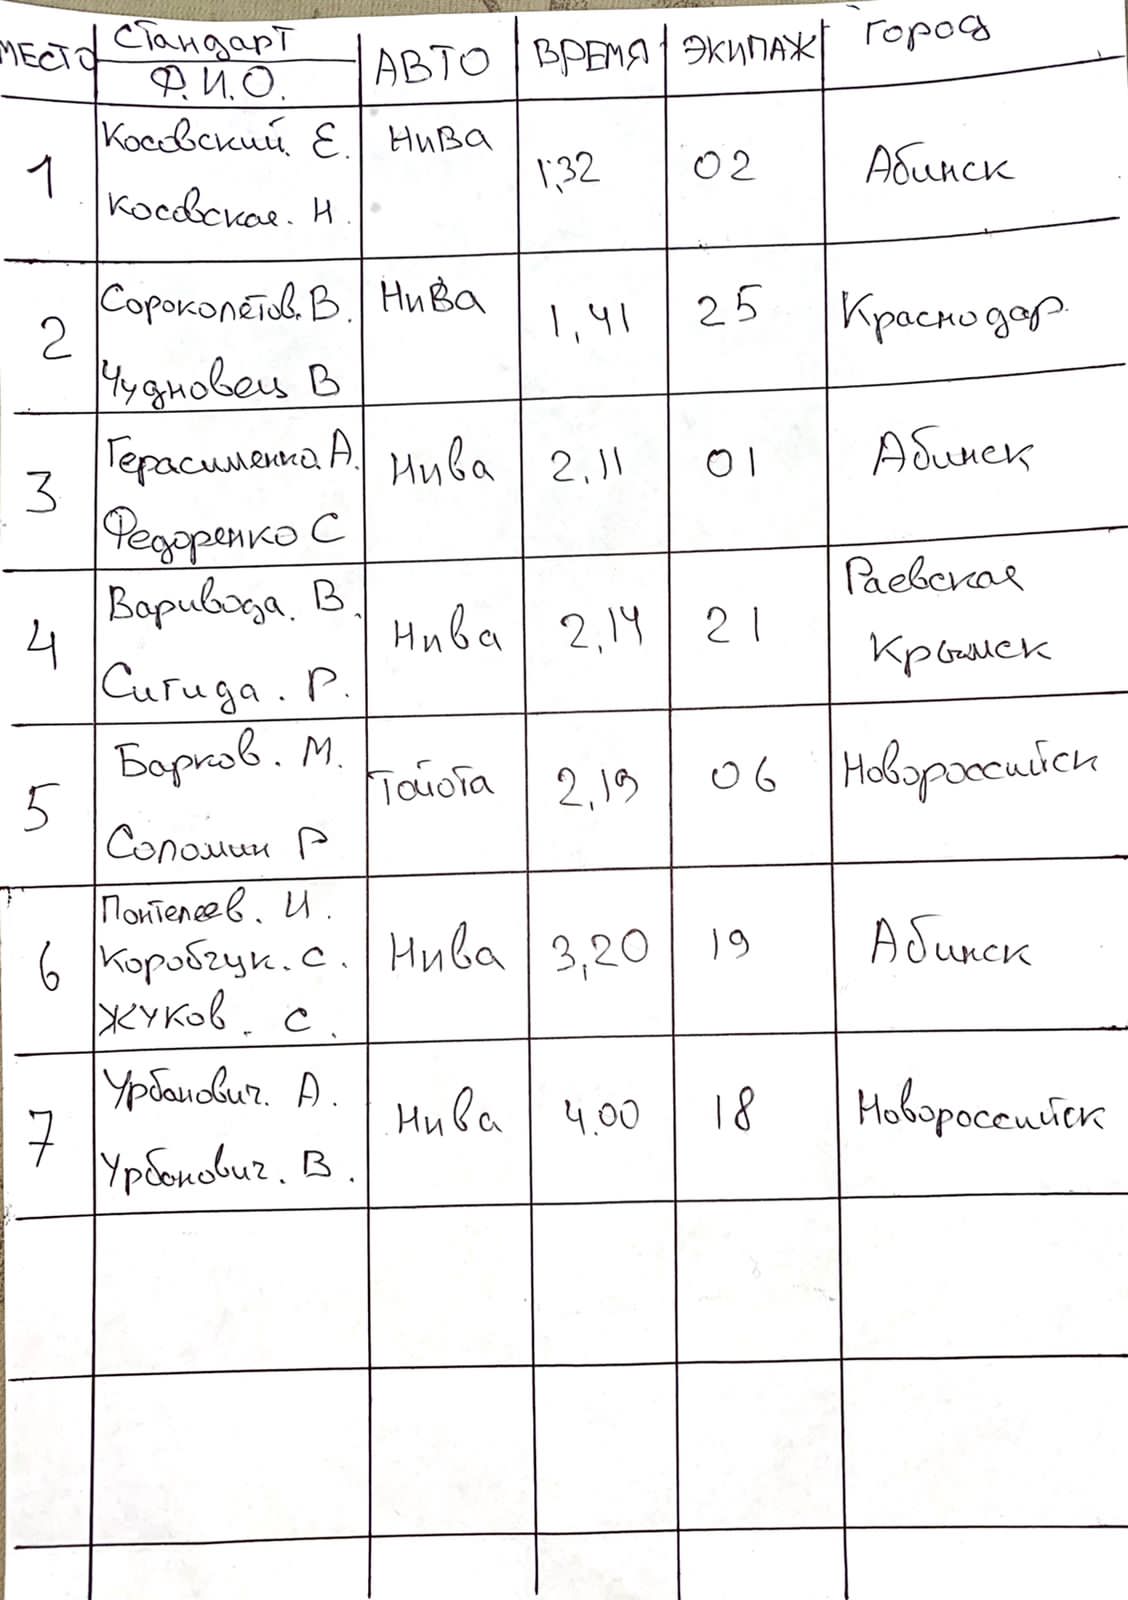 МЕСТО Стандарт Ф.И.О. АВТО ВРЕМЯ ЭКИПАЖ Город
1 Косовский. Е. Нива 1,32 02 Абинск
Косовская. Н.
2 Сороколетов. В. Нива 1,41 25 Краснодар.
Чудновец В
3 Герасименко А. Нива 2,11 01 Абинск
Федоренко С
4 Варивода. В. Нива 2,14 21 Раевская
Сигида. Р. Крымск
5 Барков. М. Тойота 2,19 06 Новороссийск
Соломин Р
6 Понтелеев. И. Нива 3,20 19 Абинск
Коробчук. С.
Жуков. С.
7 Урбанович. А. Нива 4.00 18 Новороссийск
Урбанович. В.